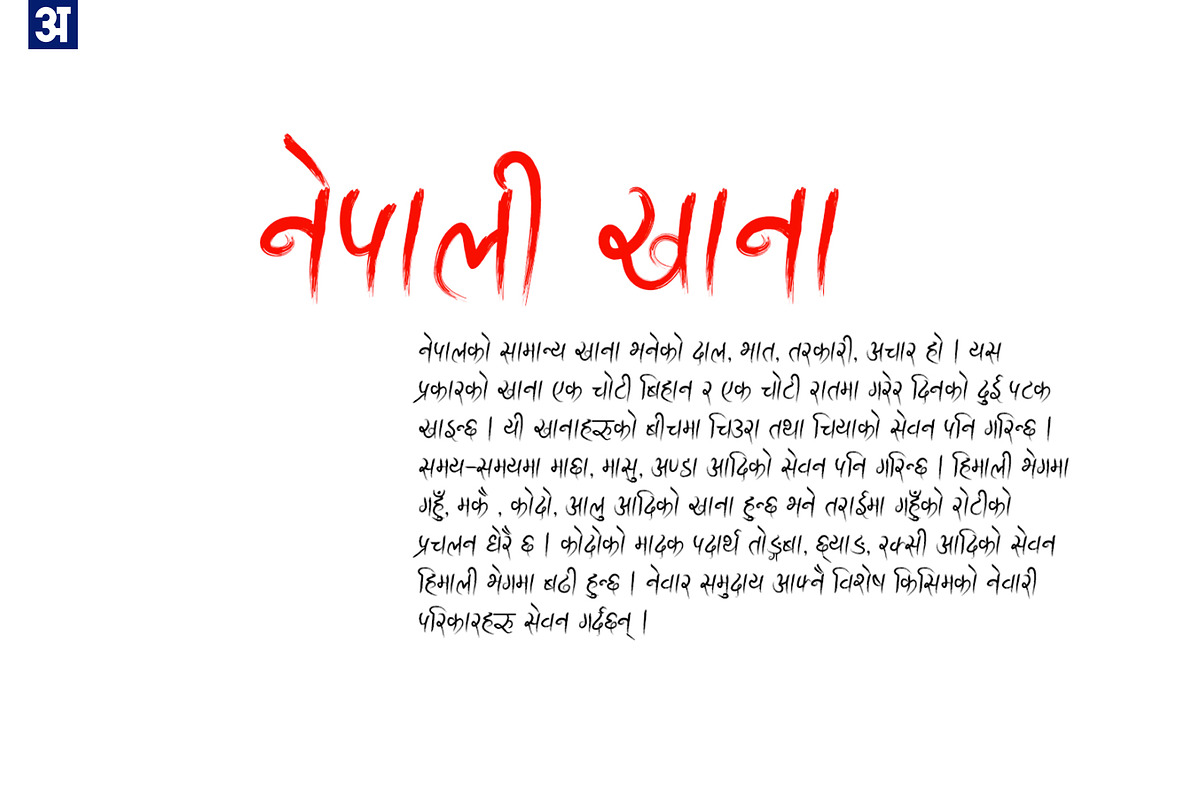 अ
नेपाली खाना
नेपालको सामान्य खाना भनेको दाल, भात, तरकारी, अचार हो । यस
प्रकारको खाना एक चोटी बिहान र एक चोटी रातमा गरेर दिनको दुई पटक
खाइन्छ । यी खानाहरुको बीचमा चिउरा तथा चियाको सेवन पनि गरिन्छ ।
समय-समयमा माछा, मासु, अण्डा आदिको सेवन पनि गरिन्छ । हिमाली भेगमा
गहुँ, मकै , कोदो, आलु आदिको खाना हुन्छ भने तराईमा गहुँको रोटीको
प्रचलन धेरै छ । कोदोको मादक पदार्थ तोङ्बा, छ्याङ, रक्सी आदिको सेवन
हिमाली भेगमा बढी हुन्छ । नेवार समुदाय आफ्नै विशेष किसिमको नेवारी
परिकारहरु सेवन गर्दछन् ।